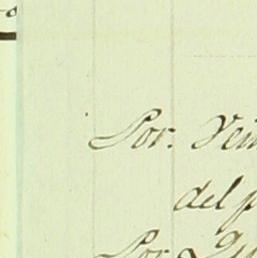 Por. Vein
del p
Por